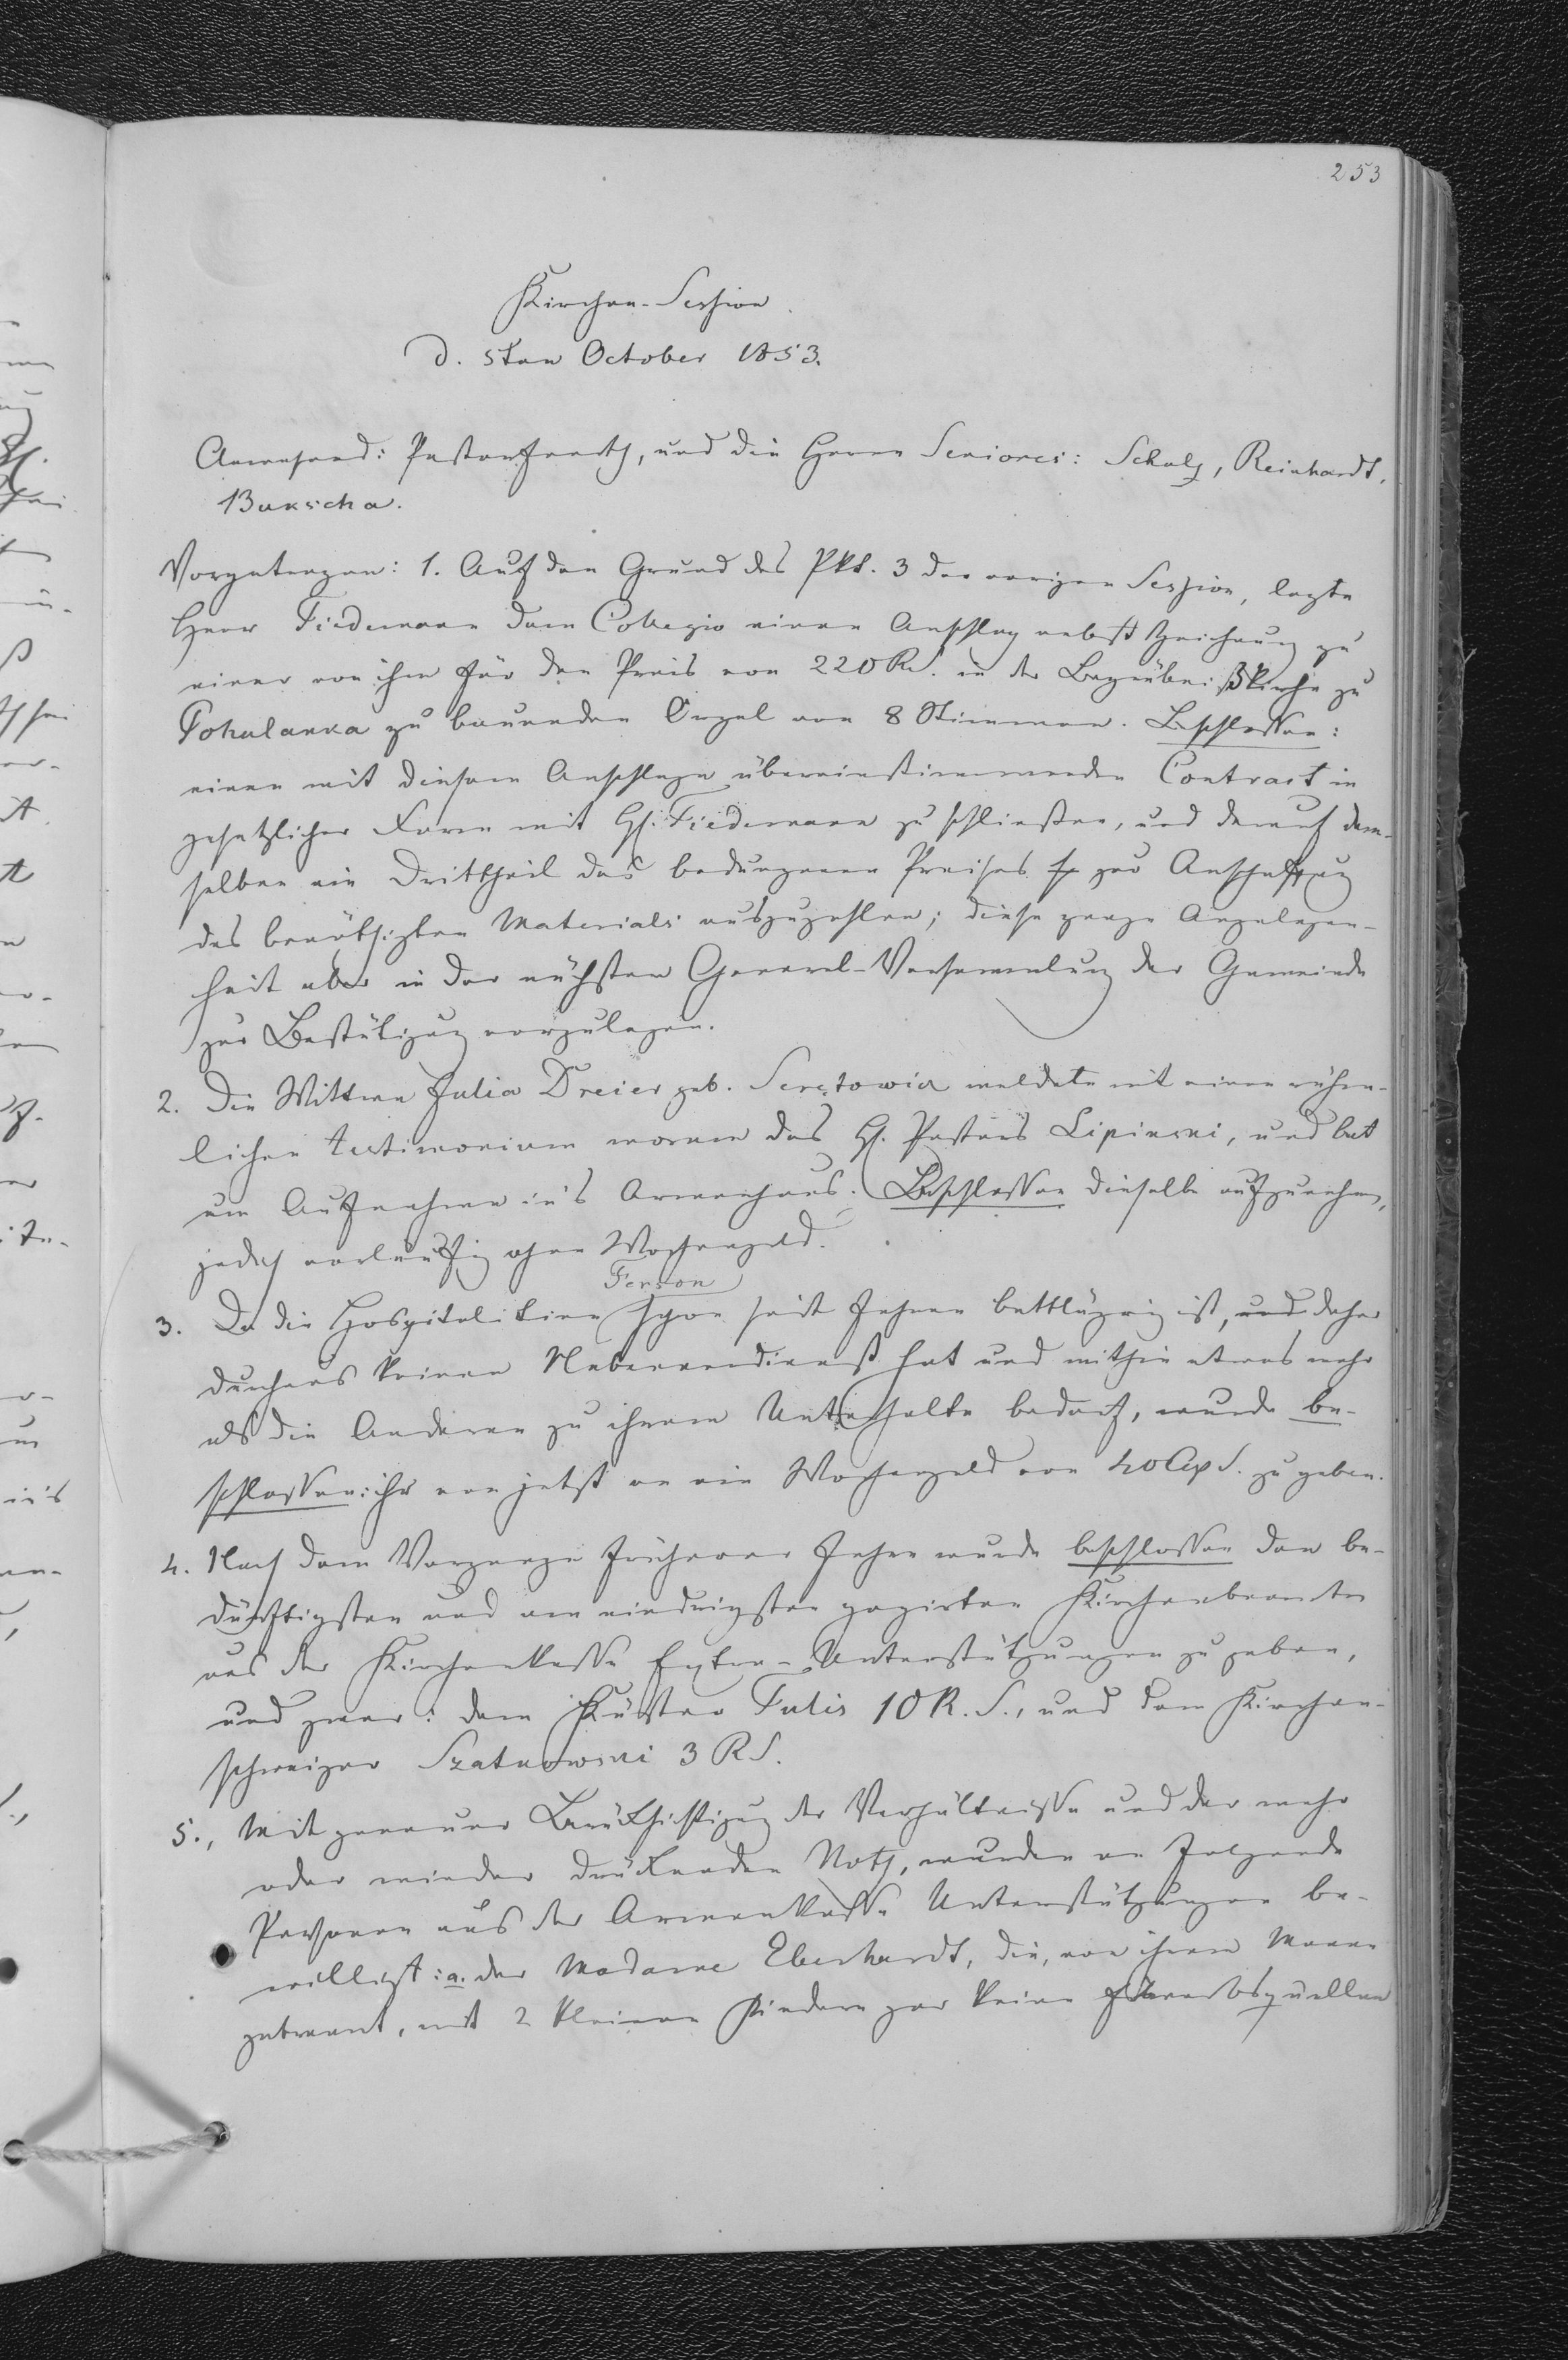 253
Kirchen-Session
d. 5ten October 1853.
Anwesend: Pastor, und die Herrn Seniores: Schulz, Reinhardt,
Bukscha.
Vorgetragen: 1. Auf den Grund des Pkt. 3 der vorigen Session, legte
Herr Tiedemann dem Collegio einen Anschlag nebst Zeichnung zu
einer von ihm für den Preis von 220 R.S. in der Begräbnißkirche zu
Pohulanka zu bauenden Orgel von 8 Stimmen. Beschlossen:
einen mit diesem Anschlage übereinstimmenden Contract in
gesetzlicher Form mit H. Tiedemann zu schließen, und darauf dem-
selben ein Drittheil des bedungenen Preises zur Anschaffung
des benöthigten Materials auszuzahlen; diese ganze Angelegen-
heit aber in der nächsten General-Versammlung der Gemeinde
zur Bestätigung vorzulegen.
2. Die Wittwe Julia Dreier geb. meldete mit einem rühm-
lichen testimonium morum des H. Pastors Lipinski, und bat
um Aufnahme in's Armenhaus. Beschlossen dieselbe aufzunehmen,
jedoch vorläufig ohne Wochengeld.
Ferson
3. Da die Hospitalitin schon seit Jahren bettlägrig ist, und daher
durchaus keinen Nebenverdienst hat und mithin etwas mehr
als die Anderen zu ihrem Unterhalte bedarf, wurde be-
schlossen: ihr von jetzt an ein Wochengeld von 40 Cop S. zu geben.
4. Nach dem Vorgange früherer Jahre wurde beschlossen den be-
dürftigsten und am niedrigsten gagirten Kirchenbeamten
aus der Kirchenkasse Extra-Unterstützungen zu geben,
und zwar: dem Küster Tutis 10 R. S., und dem Kirchen-
schweizer Szatkowski 3 RS.
5., Mit genauer Berücksichtigung der Verhältnisse und der mehr
oder minder drückenden Noth, wurden an folgende
Personen aus der Armenkasse Unterstützungen be-
willigt: a. der Madame Eberhardt, die, von ihrem Manne
getrennt, mit 2 kleinen Kindern gar keine Erwerbsquellen